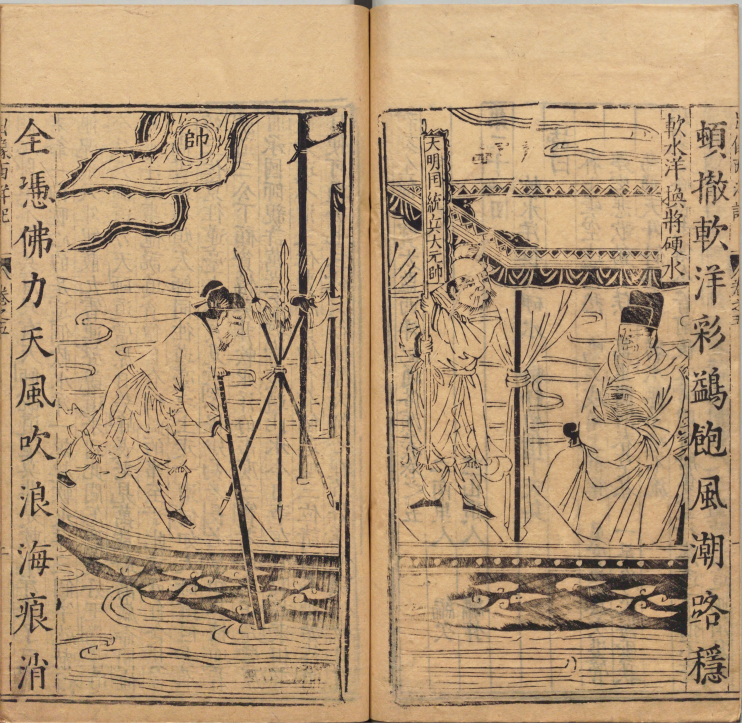 頓撤軟洋彩鷁飽風潮路穩
軟水洋換將硬水
大明国統兵大元帥
帥
全憑佛力天風吹浪海痕消
西洋記
卷之五